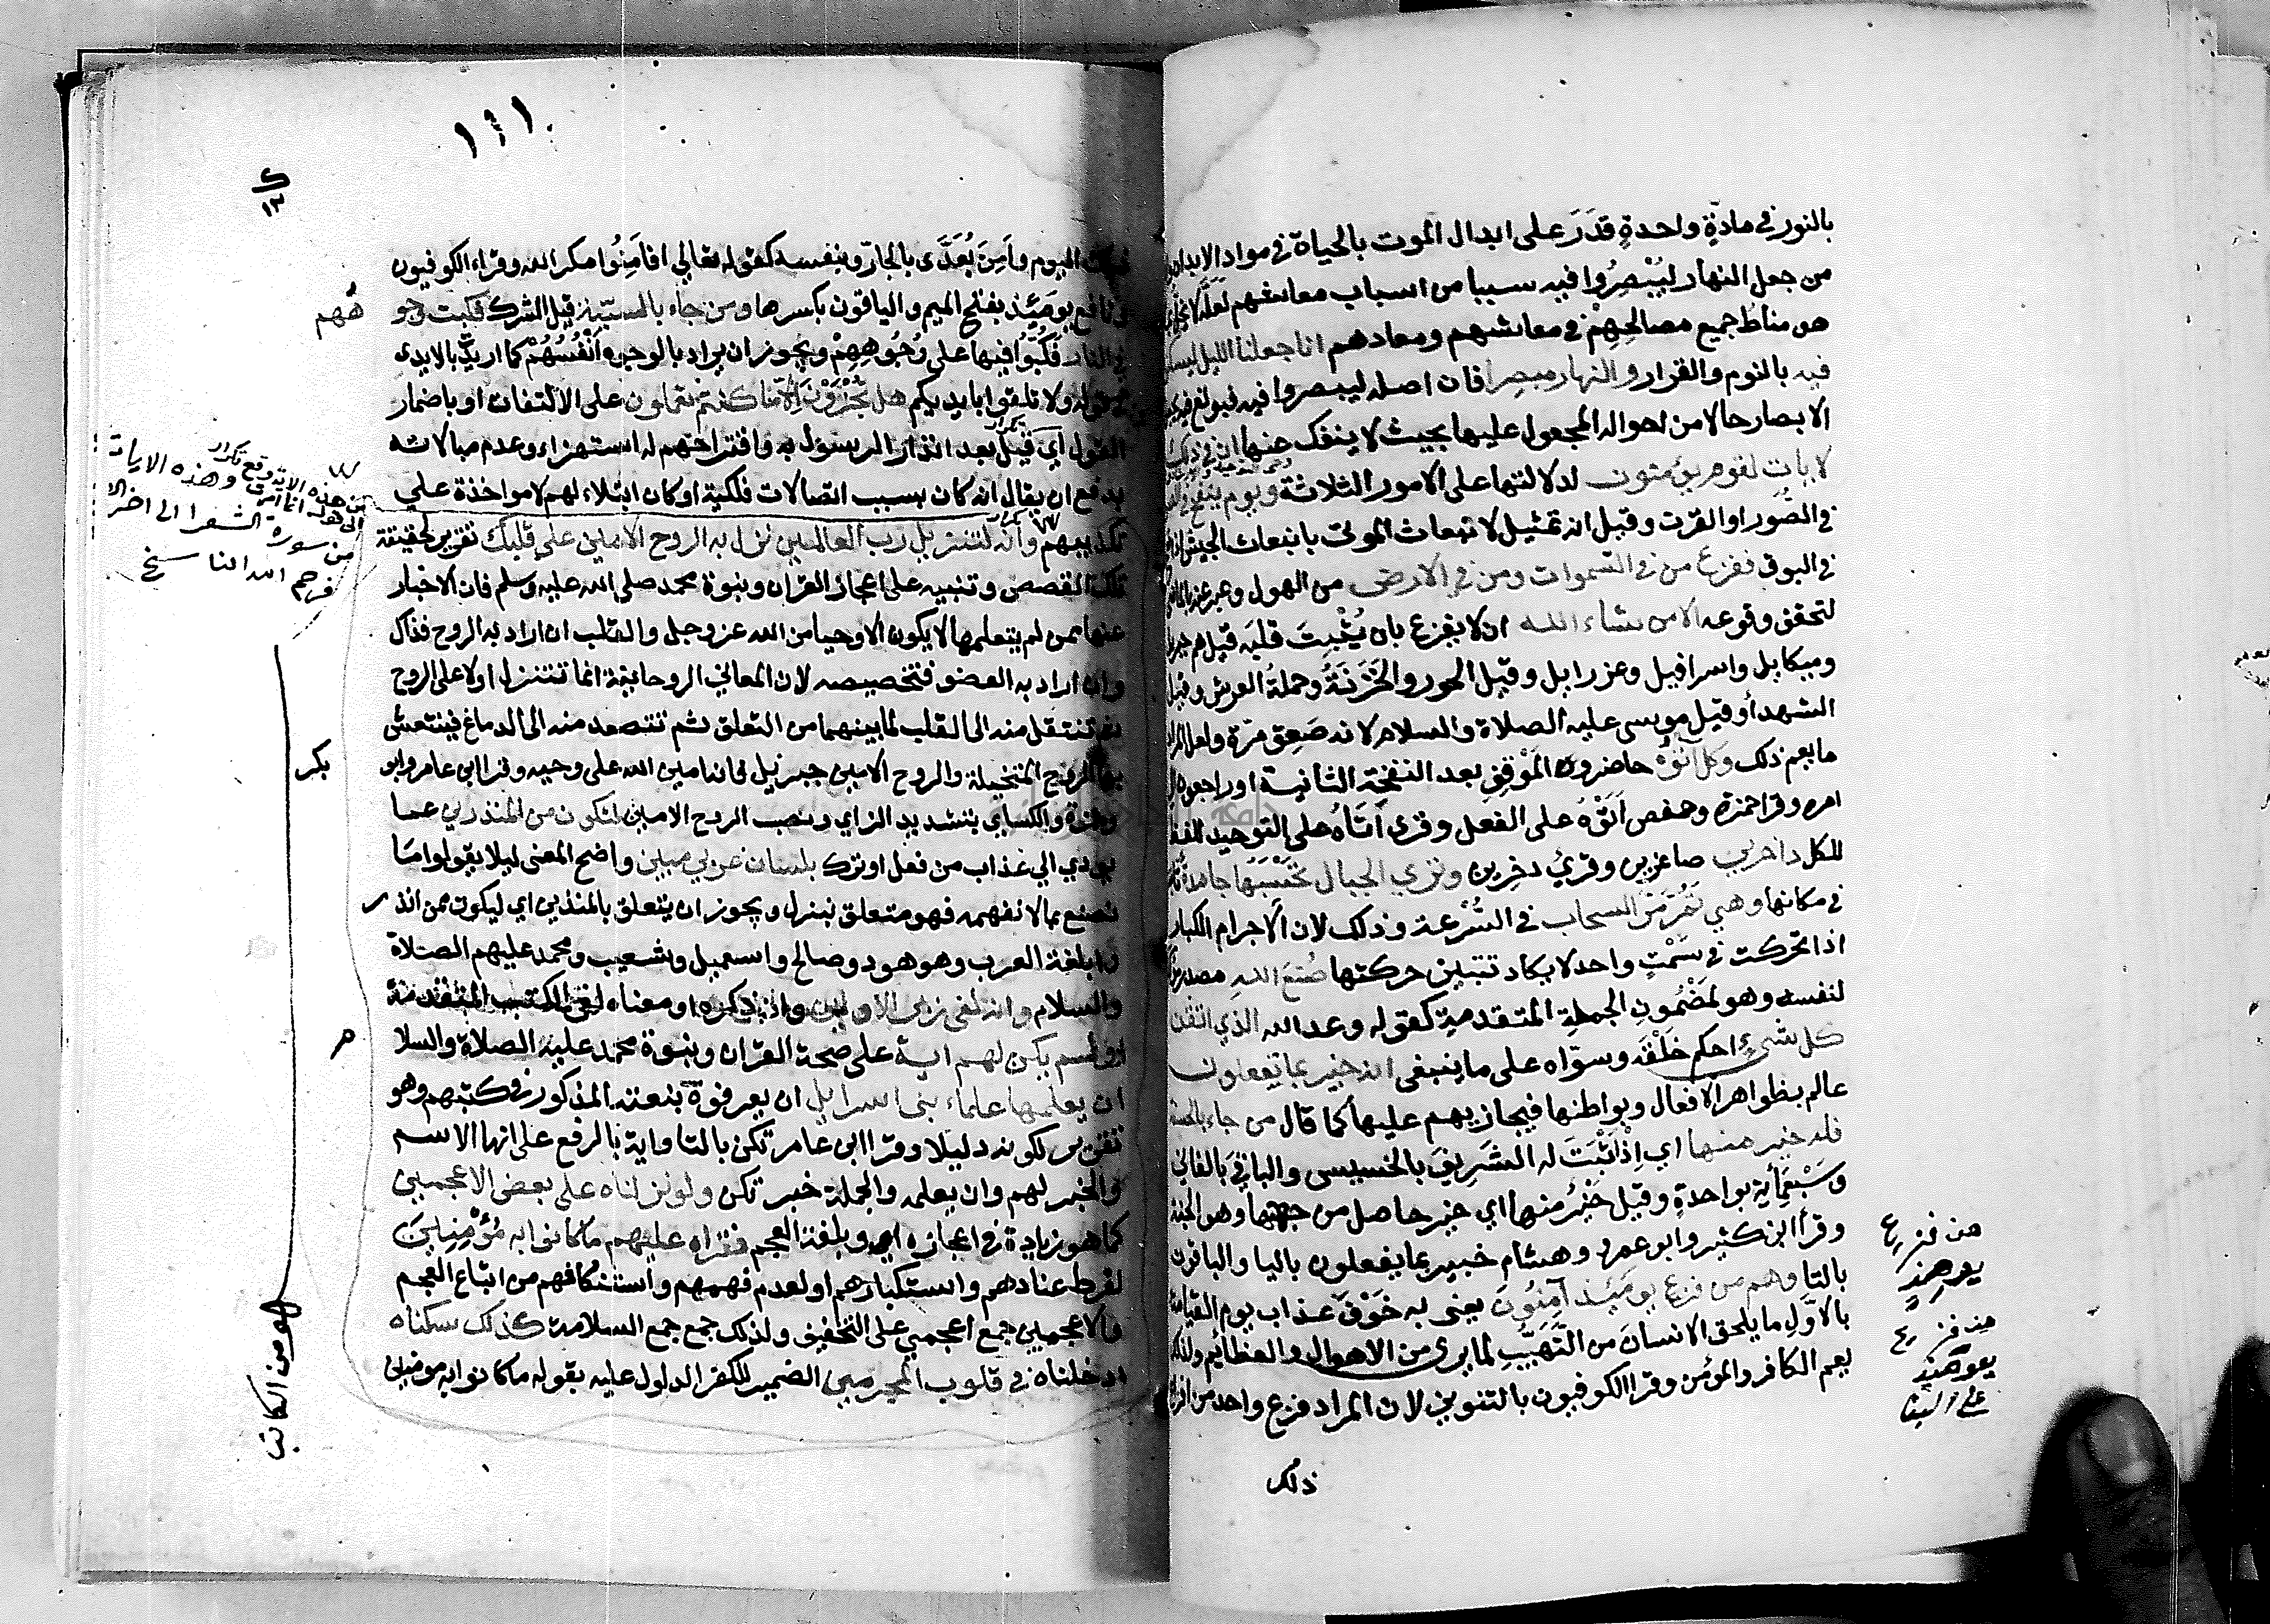 بالنور في مادةٍ واحدةٍ قَدَرَ على ابدال الموت بالحياة في مواد الابدان
من جعل النهار ليُبْصِرُوا فيه سببا من اسباب معاشهم لعله لا يخل
هو مناط جميع مصالحِهِمْ في معاشهم ومعادهم انا جعلنا الليل ليسكنوا
فيه بالنوم والقرار والنهار مبصرا فان اصله ليبصروا فيه فبولغ فيه
الابصار حالا من احواله المجعول عليها بحيث لا ينفك عنها ان في ذلك
لايات لقوم يؤمنون لدلالتها على الامور الثلاثة ويوم ينفخ
في الصُّور او القرن وقيل انه تمثيل لانبعاث الموتى بانبعاث الجيش اذا
في البوق ففزع من في السموات ومن في الارض من الهول وعبر عنه بالماضي
لتحقق وقوعه الا من شاء الله ان لا يفزع بان يُثْبِتَ قلبَه قيل هم جبريل
وميكايل واسرافيل وعزرايل وقيل الحور والخَزَنَةُ وحملةُ العرش وقيل
الشهدأ وقيل موسى عليه الصلاة والسلام لانه صَعِقَ مرّة ولعل المراد
ما يعم ذلك وكل اتَوْه حاضرون الموْقِفَ بعد النفخة الثانية او راجعون الى
امره وقرا حمزة وحفص اَتَوْهُ على الفعل وقرى اَتَاهُ على التوحيد للفظ
الكل داخرين صاغرين وقرئ دخِرين وترى الجبال تَحْسَبُهَا جامدةً
في مكانها وهي تَمُرّ مَرّ السحاب في السُّرْعة وذلك لان الاجرام الكبار
اذا تحركت في سَمْتٍ واحد لا يكاد تتبين حركتها صُنعَ اللهِ مصدر
لنفسه وهو لمَضْمُونِ الجملةِ المتقدمية كقوله وعد الله الذي اتقن
كل شيءٍ احكم خَلْقَه وسوّاه على ما ينبغى انه خبير بما تفعلون
عالم بظواهر الافعال وبواطنها فيجازيهم عليها كما قال من جاء بالحسنة
فله خير منها اي اِذْ اَثْبَتَ له الشَرِيفَ بالخسيس والباقيَ بالفاني
وسَبْعَمِأيةٍ بواحدةٍ وقيل خَيْرٌ منها اي خير حاصل من جهتها وهو الجنة
وقرأ ابن كثير وابو عمرو وهشام خبير بما يفعلون باليا والباقون
بالتا وهم من فزع يومئذ آمنون يعنى به خَوْفَ عذاب يوم القيامة
بالاوّلِ ما يلحق الانسانَ من التّهَيُّبِ لما يرى من الاهوال والعظائم ولذلك
يعم الكافر والمؤمن وقرا الكوفيون بالتنوين لان المراد فزع واحد من افزاع
ذلك
من فزع
يومئذٍ
من فزع
يومئذ
على البنا
١٩١
ك
١٣
ذلك اليوم وآمِنَ يُعَدَّى بالجار وبنفسه كقوله تعالى افامِنُوا مكر الله وقراء الكوفيون
ونافع يومَئِذ بفتح الميم والباقون بكسرها ومن جاء بالسيّية قيل الشرك فكبت وجو
هُهم
في النار فَكُبُّوا فيها على وُجُوهِهِمْ ويجوز ان يراد بالوجوه اَنْفُسُهُمْ كما اريدَ بالايدى
في قوله ولا تلقوا بايديكم هل تُجْزَوْنَ الا ما كنتم تعملون على الالتفات او باضمار
القول اي قيل بعد انذار الرسول به واقتراحهم له استهزاء وعدم مبالات به
تكرار
يدفع ان يقال انه كان بسبب اتصالات فلكية او كان ابتلاء لهم لا مواخذة على
تكذيبهم وانه لتنزيل رب العالمين نزل به الروح الامين على قلبك تقرير لحقيقة
تلك القصص وتنبيه على اعجاز القران ونبوة محمد صلى الله عليه وسلم فان الاخبار
عنها ممن لم يتعلمها لا يكون الا وحيا من الله عز وجل والقلب ان اراد به الروح فذاك
وان اراد به العضو فتخصيصه لان المعاني الروحانية انما تتنزل اولا على الروح
ثم تنتقل منه الى القلب لما بينهما من التعلق ثم تتصعد منه الى الدماغ فينتعش
بها لوح المتخيلة والروح الامين جبرئيل فانه امين الله على وحيه وقرا ابن عامر وابو
بكر
وحمزة والكساي بتشديد الزاي ونصب الروح الامين لتكون من المنذرين عما
يودي الى عذاب من فعل او ترك بلسان عربي مبين واضح المعنى ليلا يقولوا ما
نصنع بما لا نفهمه فهو متعلق بنزل ويجوز ان يتعلق بالمنذرين اي ليكون ممن انذر
وا بلغة العرب وهو هود وصالح واسمعيل وشعيب ومحمد عليهم الصلاة
والسلام وانه لفي زبر الاولين وان ذكره او معناه لفي الكتب المتقدمة
اولم يكن لهم اية على صحة القران ونبوة محمد عليه الصلاة والسلا
م
ان يعلمها علماء بني اسرايل ان يعرفوه بنعته المذكور في كتبهم وهو
تقرير لكونه دليلا وقرا ابن عامر تكن بالتا واية بالرفع على انها الاسم
والخبر لهم وان يعلمه والجملة خبر تكن ولو نزلناه على بعض الاعجمين
كما هو زيادة في اعجازه او بلغة العجم فقراه عليهم ما كانوا به مُؤْمِنِينَ
لفرط عنادهم واستكبارهم او لعدم فهمهم واستنكافهم من اتباع العجم
والاعجمين جمع اعجمي على التخفيف ولذلك جمع جمع السلامة كذلك سلكناه
ادخلناه في قلوب المجرمين الضمير للكفر المدلول عليه بقوله ما كانوا به مومنين
من هذه الاية وقع تكرار
الى قوله انما امرت وهذه الايات
من سورة الشعرا الى اخر
فرحم الله الناسخ
سهو من الكاتب